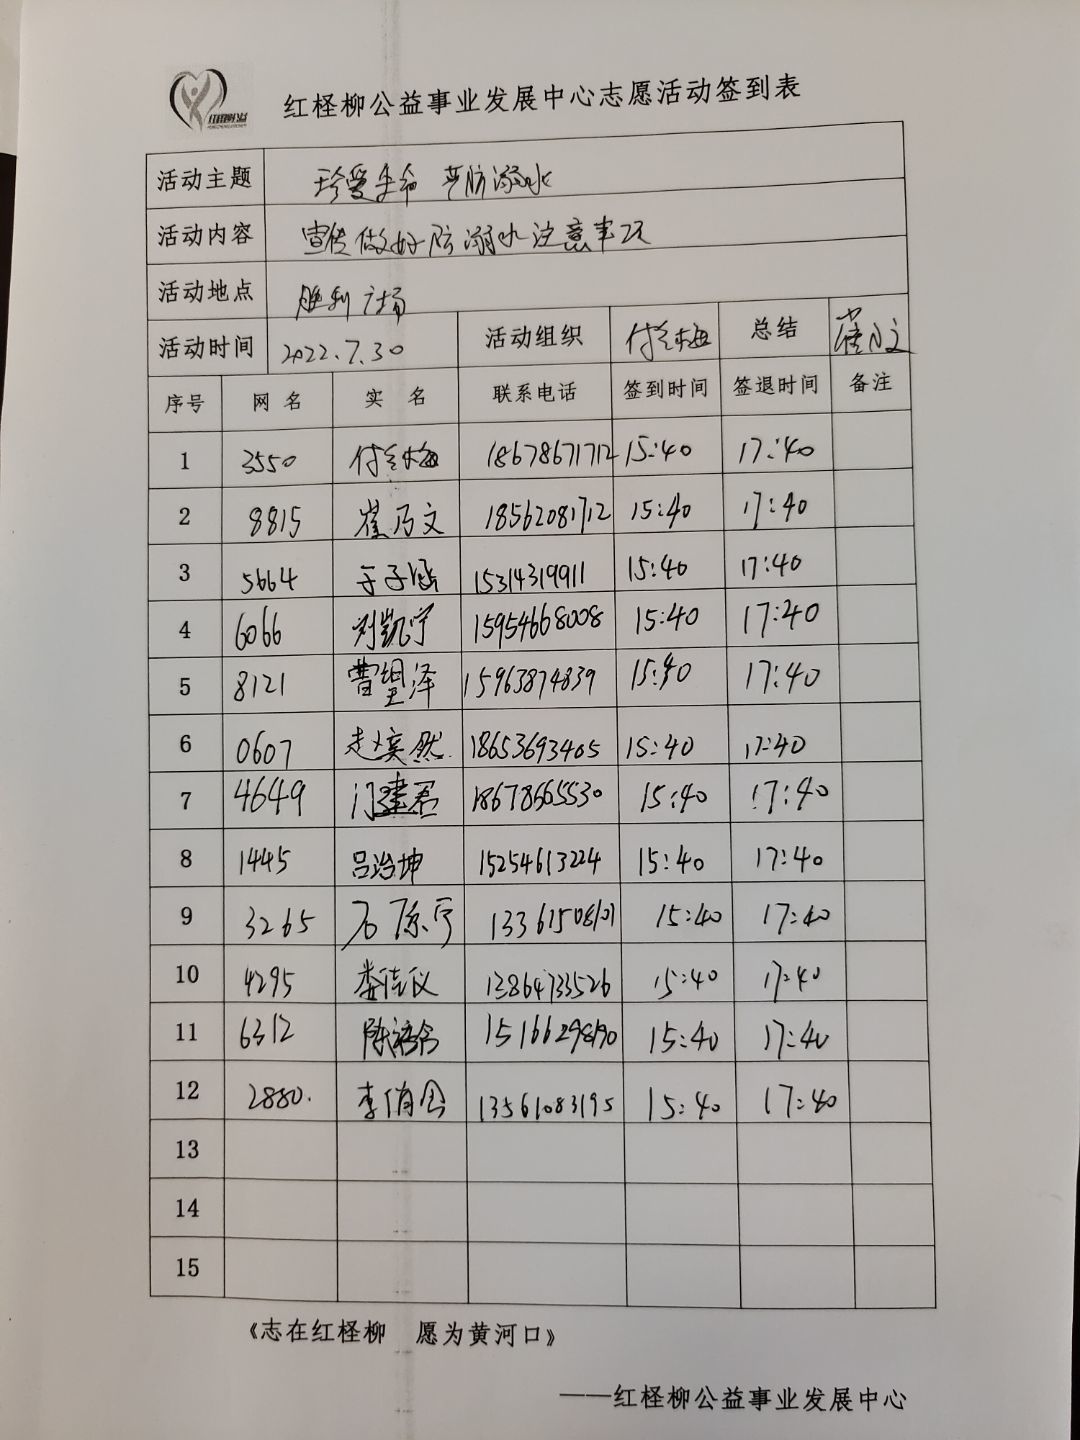 红柽柳公益事业发展中心志愿活动签到表
活动主题 珍爱生命 严防溺水
活动内容 宣传做好防溺水注意事项
活动地点 胜利广场
活动时间 2022.7.30 活动组织 付兰梅 总结 崔乃文
序号 网名 实名 联系电话 签到时间 签退时间 备注
1 3550 付兰梅 18678671712 15:40 17:40
2 8815 崔乃文 18562081712 15:40 17:40
3 5664 于子涵 15314319911 15:40 17:40
4 6066 刘凯宁 15954668008 15:40 17:40
5 8121 曹 泽 15963874839 15:40 17:40
6 0607 赵奕然 18653693405 15:40 17:40
7 4649 门建君 18678665530 15:40 17:40
8 1445 吕治坤 15254613224 15:40 17:40
9 3265 石 宇 13361508101 15:40 17:40
10 4295 娄佳仪 13864733526 15:40 17:40
11 6312 陈 含 15:40 17:40
12 2880. 李俏 13561083195 15:40 17:40
13
14
15
《志在红柽柳 愿为黄河口》
——红柽柳公益事业发展中心